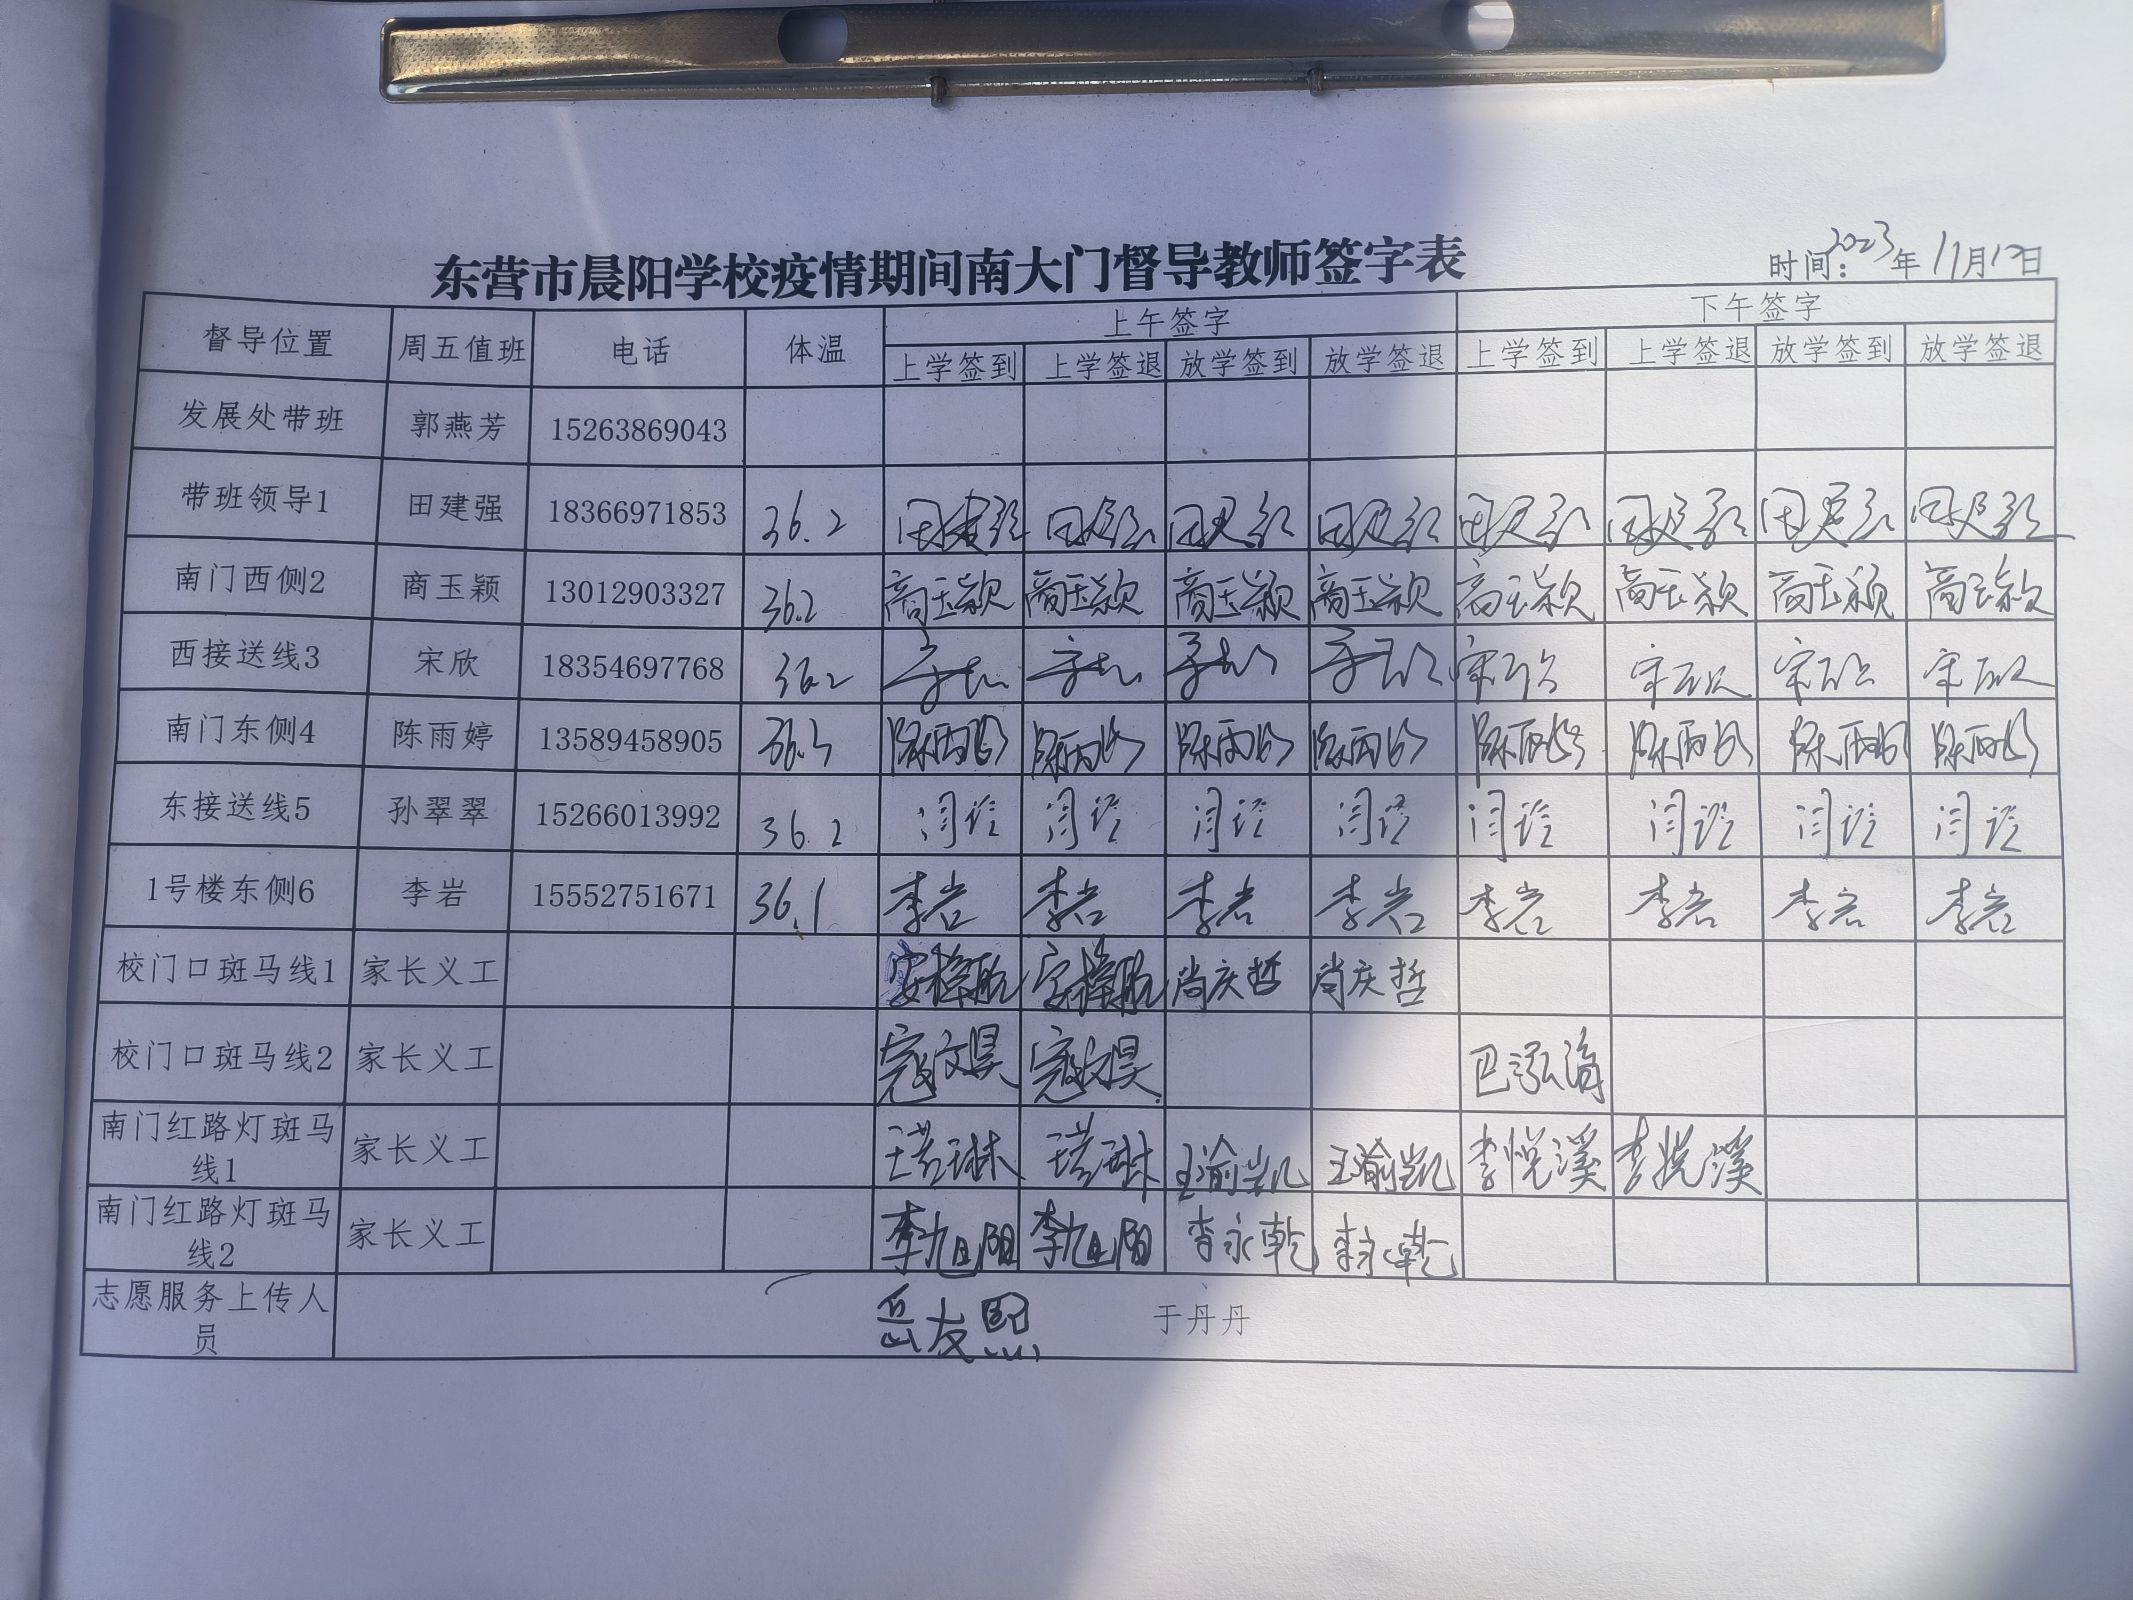 东营市晨阳学校疫情期间南大门督导教师签字表
时间：2023年11月17日
督导位置 周五值班 电话 体温 上午签字 下午签字
上学签到 上学签退 放学签到 放学签退 上学签到 上学签退 放学签到 放学签退
发展处带班 郭燕芳 15263869043
带班领导1 田建强 18366971853 36.2 田建强 田建强 田建强 田建强 田建强 田建强 田建强 田建强
南门西侧2 商玉颖 13012903327 36.2 商玉颖 商玉颖 商玉颖 商玉颖 商玉颖 商玉颖 商玉颖 商玉颖
西接送线3 宋欣 18354697768 36.2 宋欣 宋欣 宋欣 宋欣
南门东侧4 陈雨婷 13589458905 36.3 陈雨婷 陈雨婷 陈雨婷 陈雨婷 陈雨婷 陈雨婷 陈雨婷 陈雨婷
东接送线5 孙翠翠 15266013992 36.2
1号楼东侧6 李岩 15552751671 36.1 李岩 李岩 李岩 李岩 李岩 李岩 李岩 李岩
校门口斑马线1 家长义工 安梓航 安梓航 尚庆哲 尚庆哲
校门口斑马线2 家长义工 寇文昊 寇文昊
南门红路灯斑马线1 家长义工 王渝凯 王渝凯 李悦溪 李悦溪
南门红路灯斑马线2 家长义工 李旭阳 李旭阳 李永乾 李永乾
志愿服务上传人员 岳友熙 于丹丹